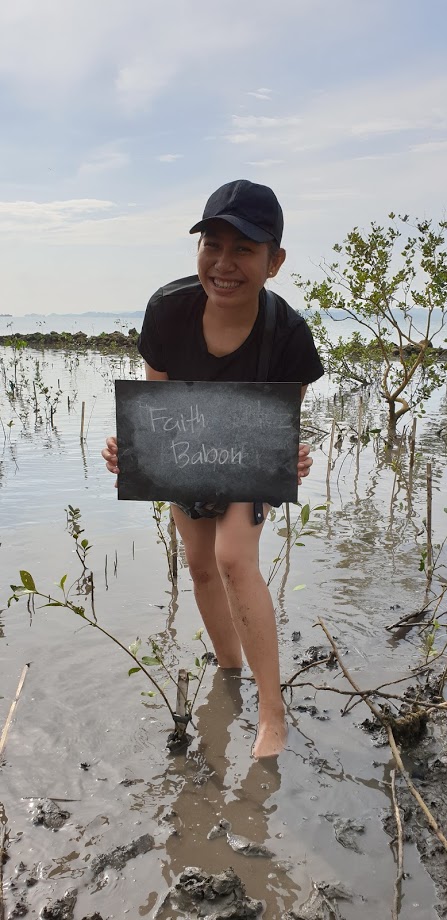 Faith
Babon